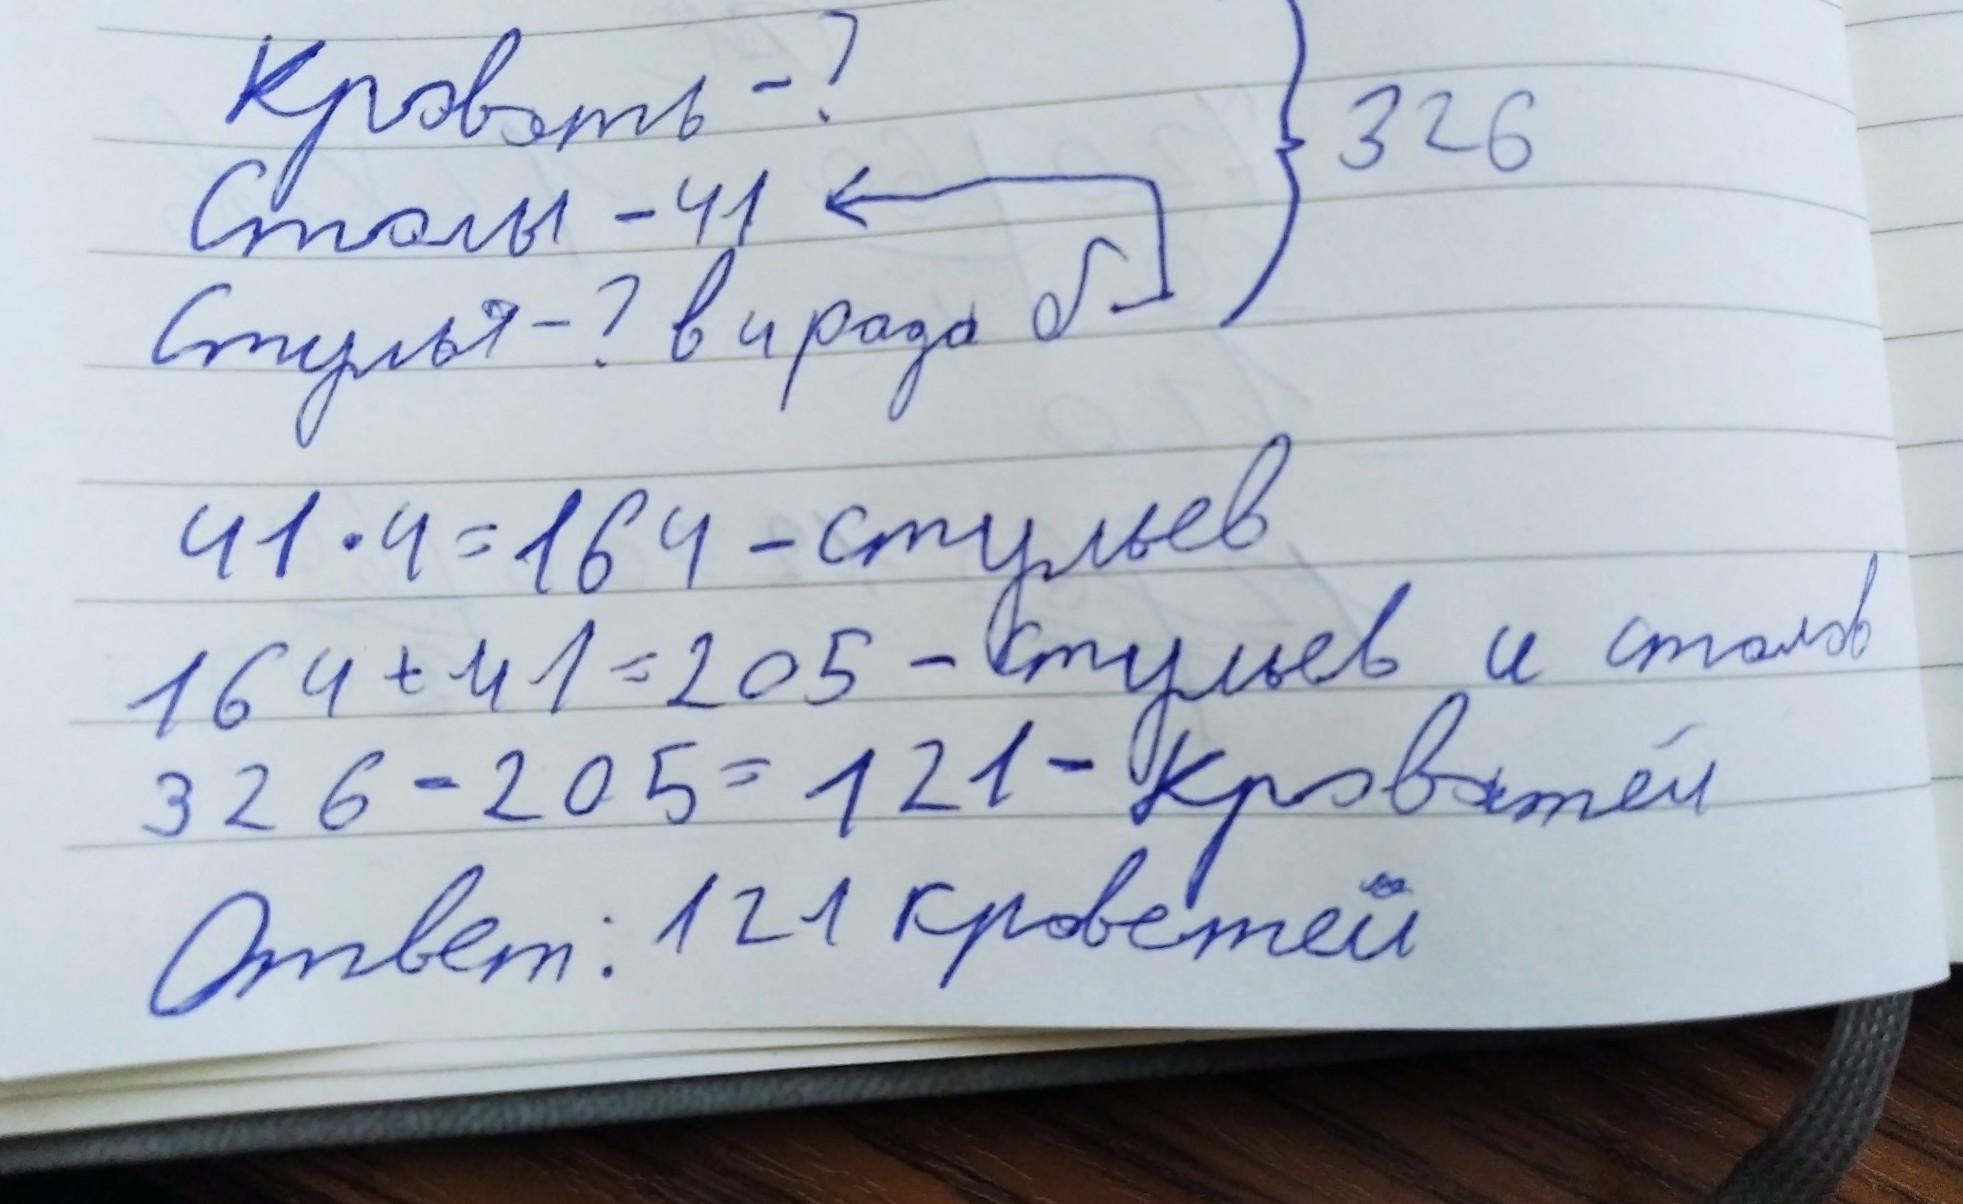 Кровать - ?
Столы - 41
Стулья - ? в 4 раза б
} 326
41 · 4 = 164 - стульев
164 + 41 = 205 - стульев и столов
326 - 205 = 121 - кроватей
Ответ: 121 кроветей